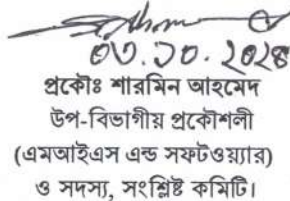 ০৩.১০.২০২৪
প্রকৌঃ শারমিন আহমেদ
উপ-বিভাগীয় প্রকৌশলী
(এমআইএস এন্ড সফটওয়্যার)
ও সদস্য, সংশ্লিষ্ট কমিটি।